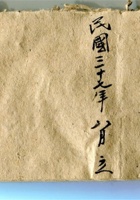 民國三十七年 八月 立